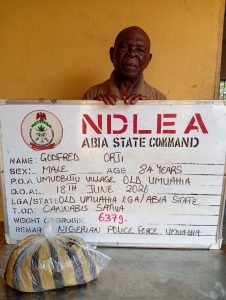 NDLEA
ABIA STATE COMMAND
NAME: GODFRED ORJI
SEX: MALE AGE 84 YEARS
P.O.A: UMUOBUTU VILLAGE, OLD UMUAHIA
D.O.A: 18TH JUNE 2026
LGA/STATE: OLD UMUAHIA LGA/ABIA STATE
T.OD: CANNABIS SATIVA
WEIGHT OF DRUGS: 637g.
REMARK: NIGERIAN POLICE FORCE UMUAHIA